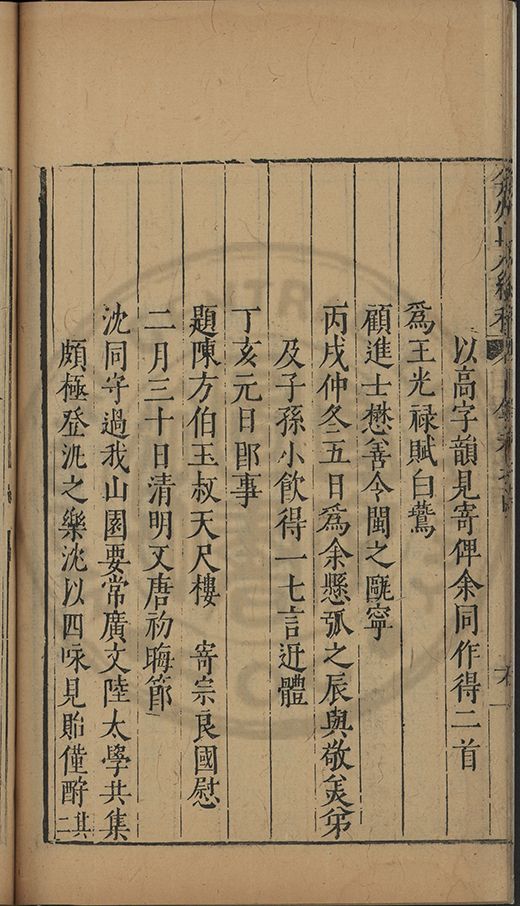 弇州山人續稿
以高字韻見寄俾余同作得二首
爲王光禄賦白鷰
顧進士懋善令閩之甌寧
丙戌仲冬五日爲余懸弧之辰與敬美弟
及子孫小飲得一七言近體
丁亥元日即事
題陳方伯玉叔天尺樓　寄宗良國慰
二月三十日清明又唐初晦節
沈同守過我山園要常廣文陸太學共集
頗極登汎之樂沈以四咏見貽僅酧其二